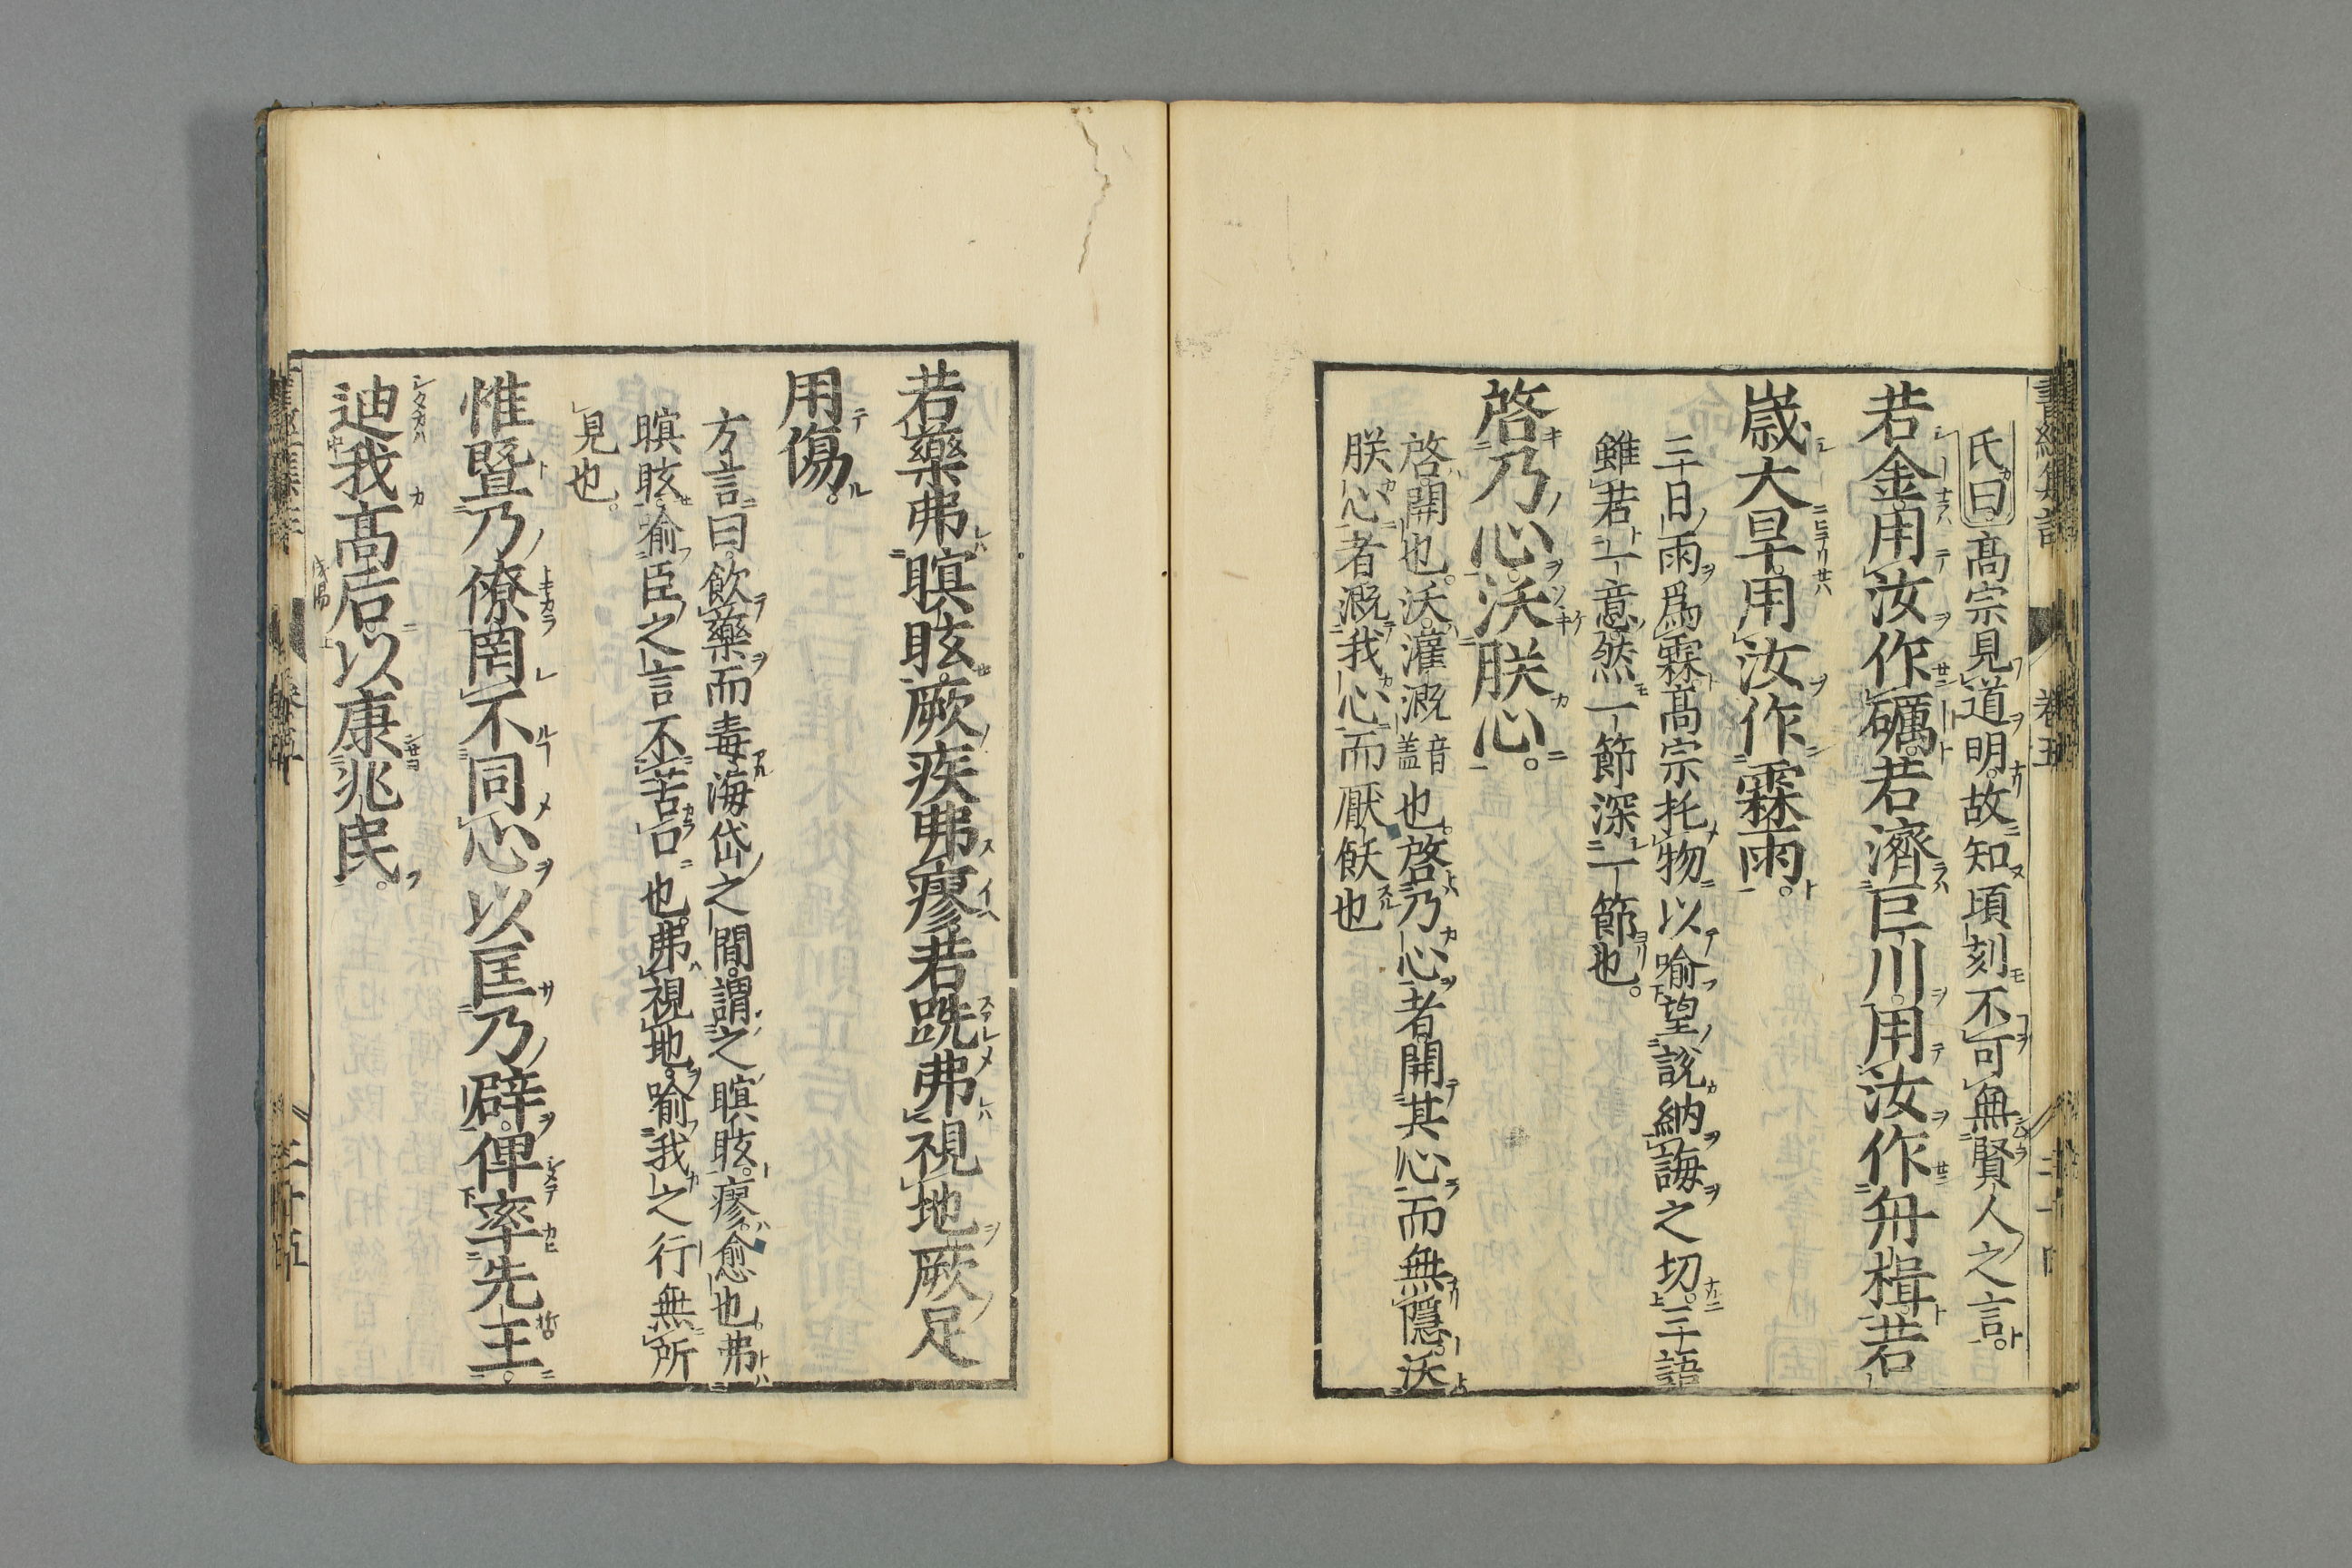 氏曰。高宗見道明。故知頃刻不可無賢人之言。
若金。用汝作礪。若濟巨川。用汝作舟楫。若
歲大旱。用汝作霖雨。
三日雨爲霖。高宗托物以喻望說納誨之切。三語
雖若一意。然一節深一節也。
啓乃心。沃朕心。
啓。開也。沃。灌漑音盖也。啓乃心者。開其心而無隱。沃
朕心者。漑我心而厭飫也
若藥弗瞑眩。厥疾弗瘳。若跣弗視地。厥足
用傷。
方言曰。飮藥而毒。海岱之間。謂之瞑眩。瘳。愈也。弗
瞑眩。喻臣之言不苦口也。弗視地。喻我之行無所
見也。
惟曁乃僚。罔不同心。以匡乃辟。俾率先王。
迪我高后。以康兆民。